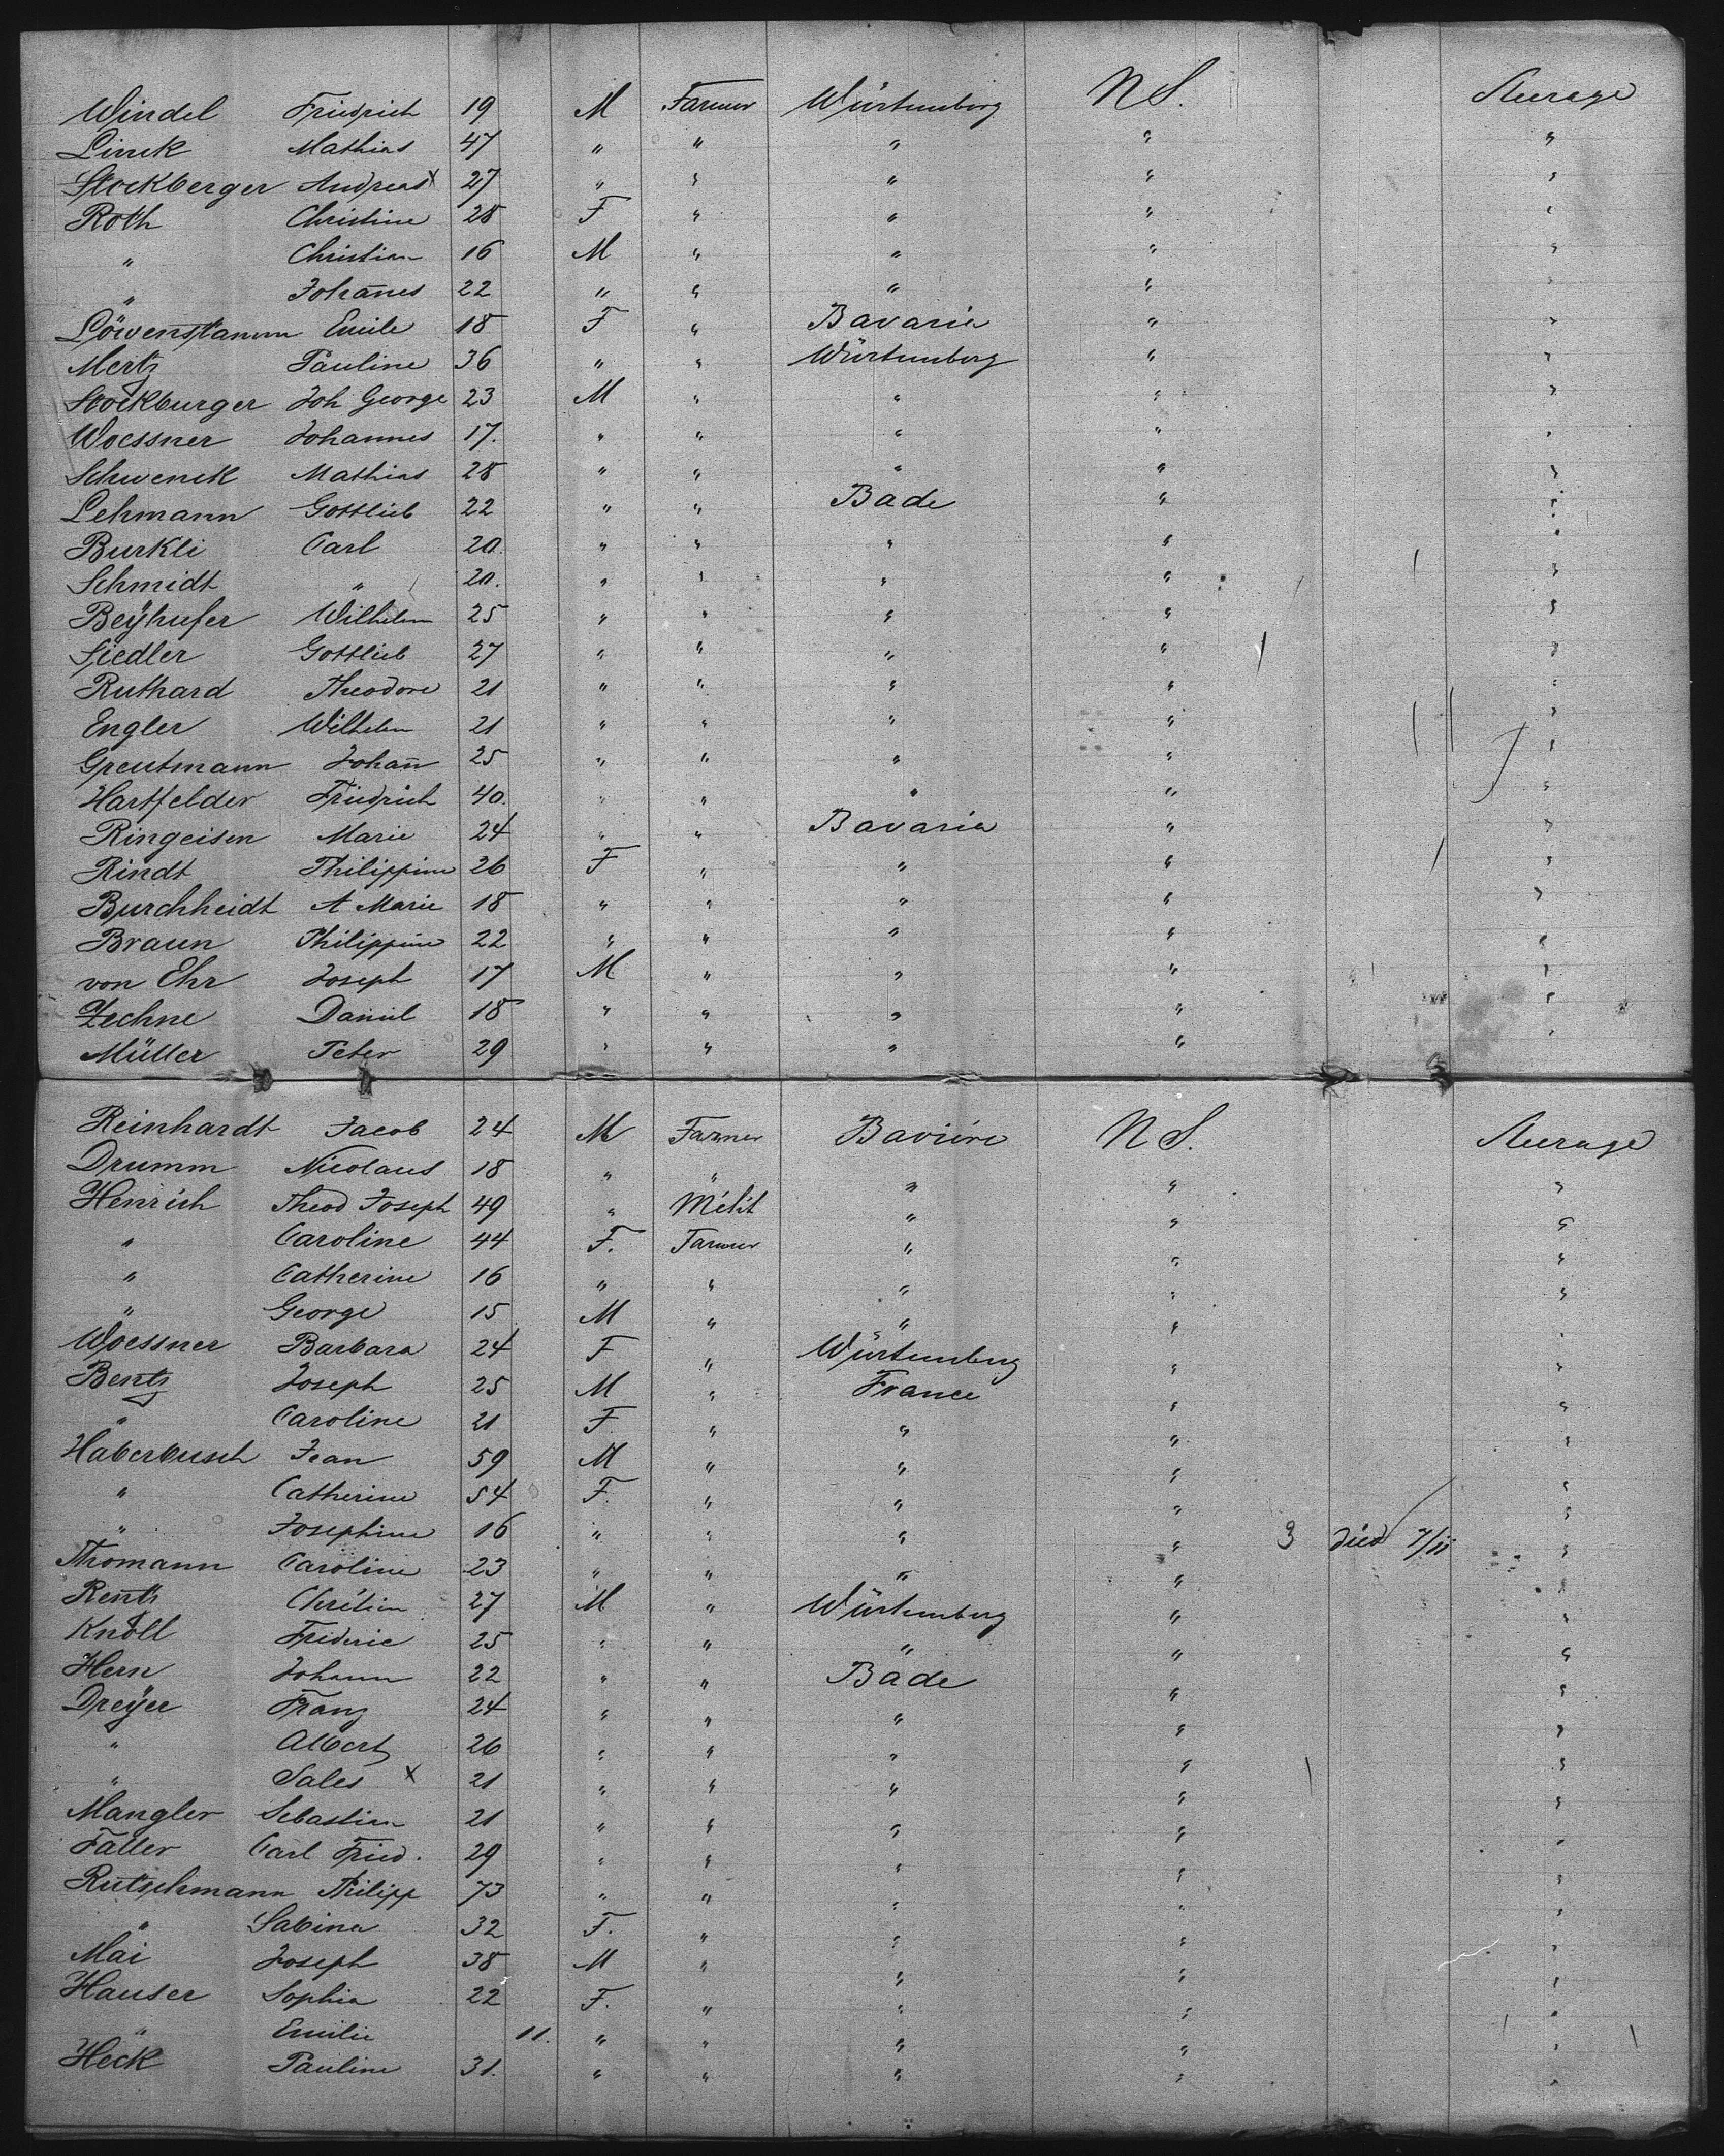 Windel Friedrich 19 M Farmer Würtemberg N S. Steerage
Linck Mathias 47 " " " " "
Stockberger Andreas x 27 " " " " "
Roth Christine 28 F " " " "
" Christian 16 M " " " "
" Johañes 22 " " " " "
Löwenstamm Emile 18 F " Bavaria " "
Mertz Pauline 36 " " Würtemberg " "
Stockburger Joh George 23 M " " " "
Woessner Johannes 17. " " " " "
Schwenck Mathias 28 " " " " "
Lehmann Gottlieb 22 " " Bade " "
Burkli Carl 20. " " " " "
Schmidt " 20. " " " " "
Beÿhufer Wilhelm 25 " " " " "
Siedler Gottlieb 27 " " " " "
Ruthard Theodore 21 " " " " "
Engler Wilhelm 21 " " " " "
Greutmann Johañ 25 " " " " "
Hartfelder Friedrich 40. " " " " "
Ringeisen Marie 24 " " Bavaria " "
Rindt Philippine 26 F " " " "
Burchheidt A Marie 18 " " " " "
Braun Philippine 22 " " " " "
von Ehr Joseph 17 M " " " "
Zechne Daniel 18 " " " " "
Müller Peter 29 " " " " "
Reinhardt Jacob 24 M Farmer Bavière N S. Steerage
Drumm Nicolaus 18 " " " " "
Henrich Theod Joseph 49 " " " "
" Caroline 44 F. Farmer " " "
" Catherine 16 " " " " "
" George 15 M " " " "
Woessner Barbara 24 F " Würtemberg " "
Bentz Joseph 25 M " France " "
" Caroline 21 F " " " "
Haberbusch Jean 59 M " " " "
" Catherine 54 F. " " " "
" Josephine 16 " " " " 3 died 7/11 "
Thomann Caroline 23 " " " " "
Rentz Chrétien 27 M " Würtemberg " "
Knoll Frideric 25 " " " " "
Hern Johann 22 " " Bade " "
Dreÿer Franz 24 " " " " "
" Albert 26 " " " " "
" Sales x 21 " " " " "
Mangler Sebastian 21 " " " " "
Faller Carl Fried. 29 " " " " "
Rutschmann Philipp 73 " " " " "
" Sabina 32 F. " " " "
Mai Joseph 38 M " " " "
Hauser Sophia 22 F. " " " "
" Emilie 11. " " " " "
Heck Pauline 31. " " " " "